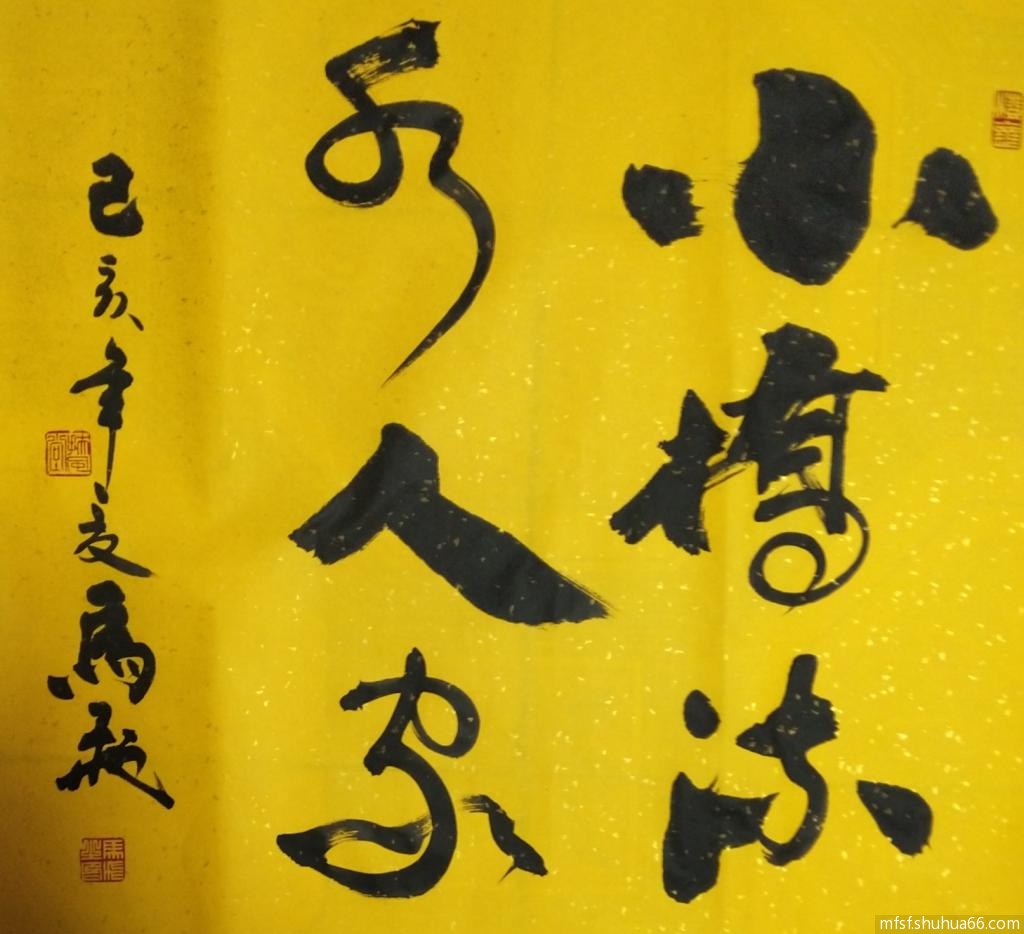 小桥流
水人家
己亥年夏马
mfsf.shuhua66.com